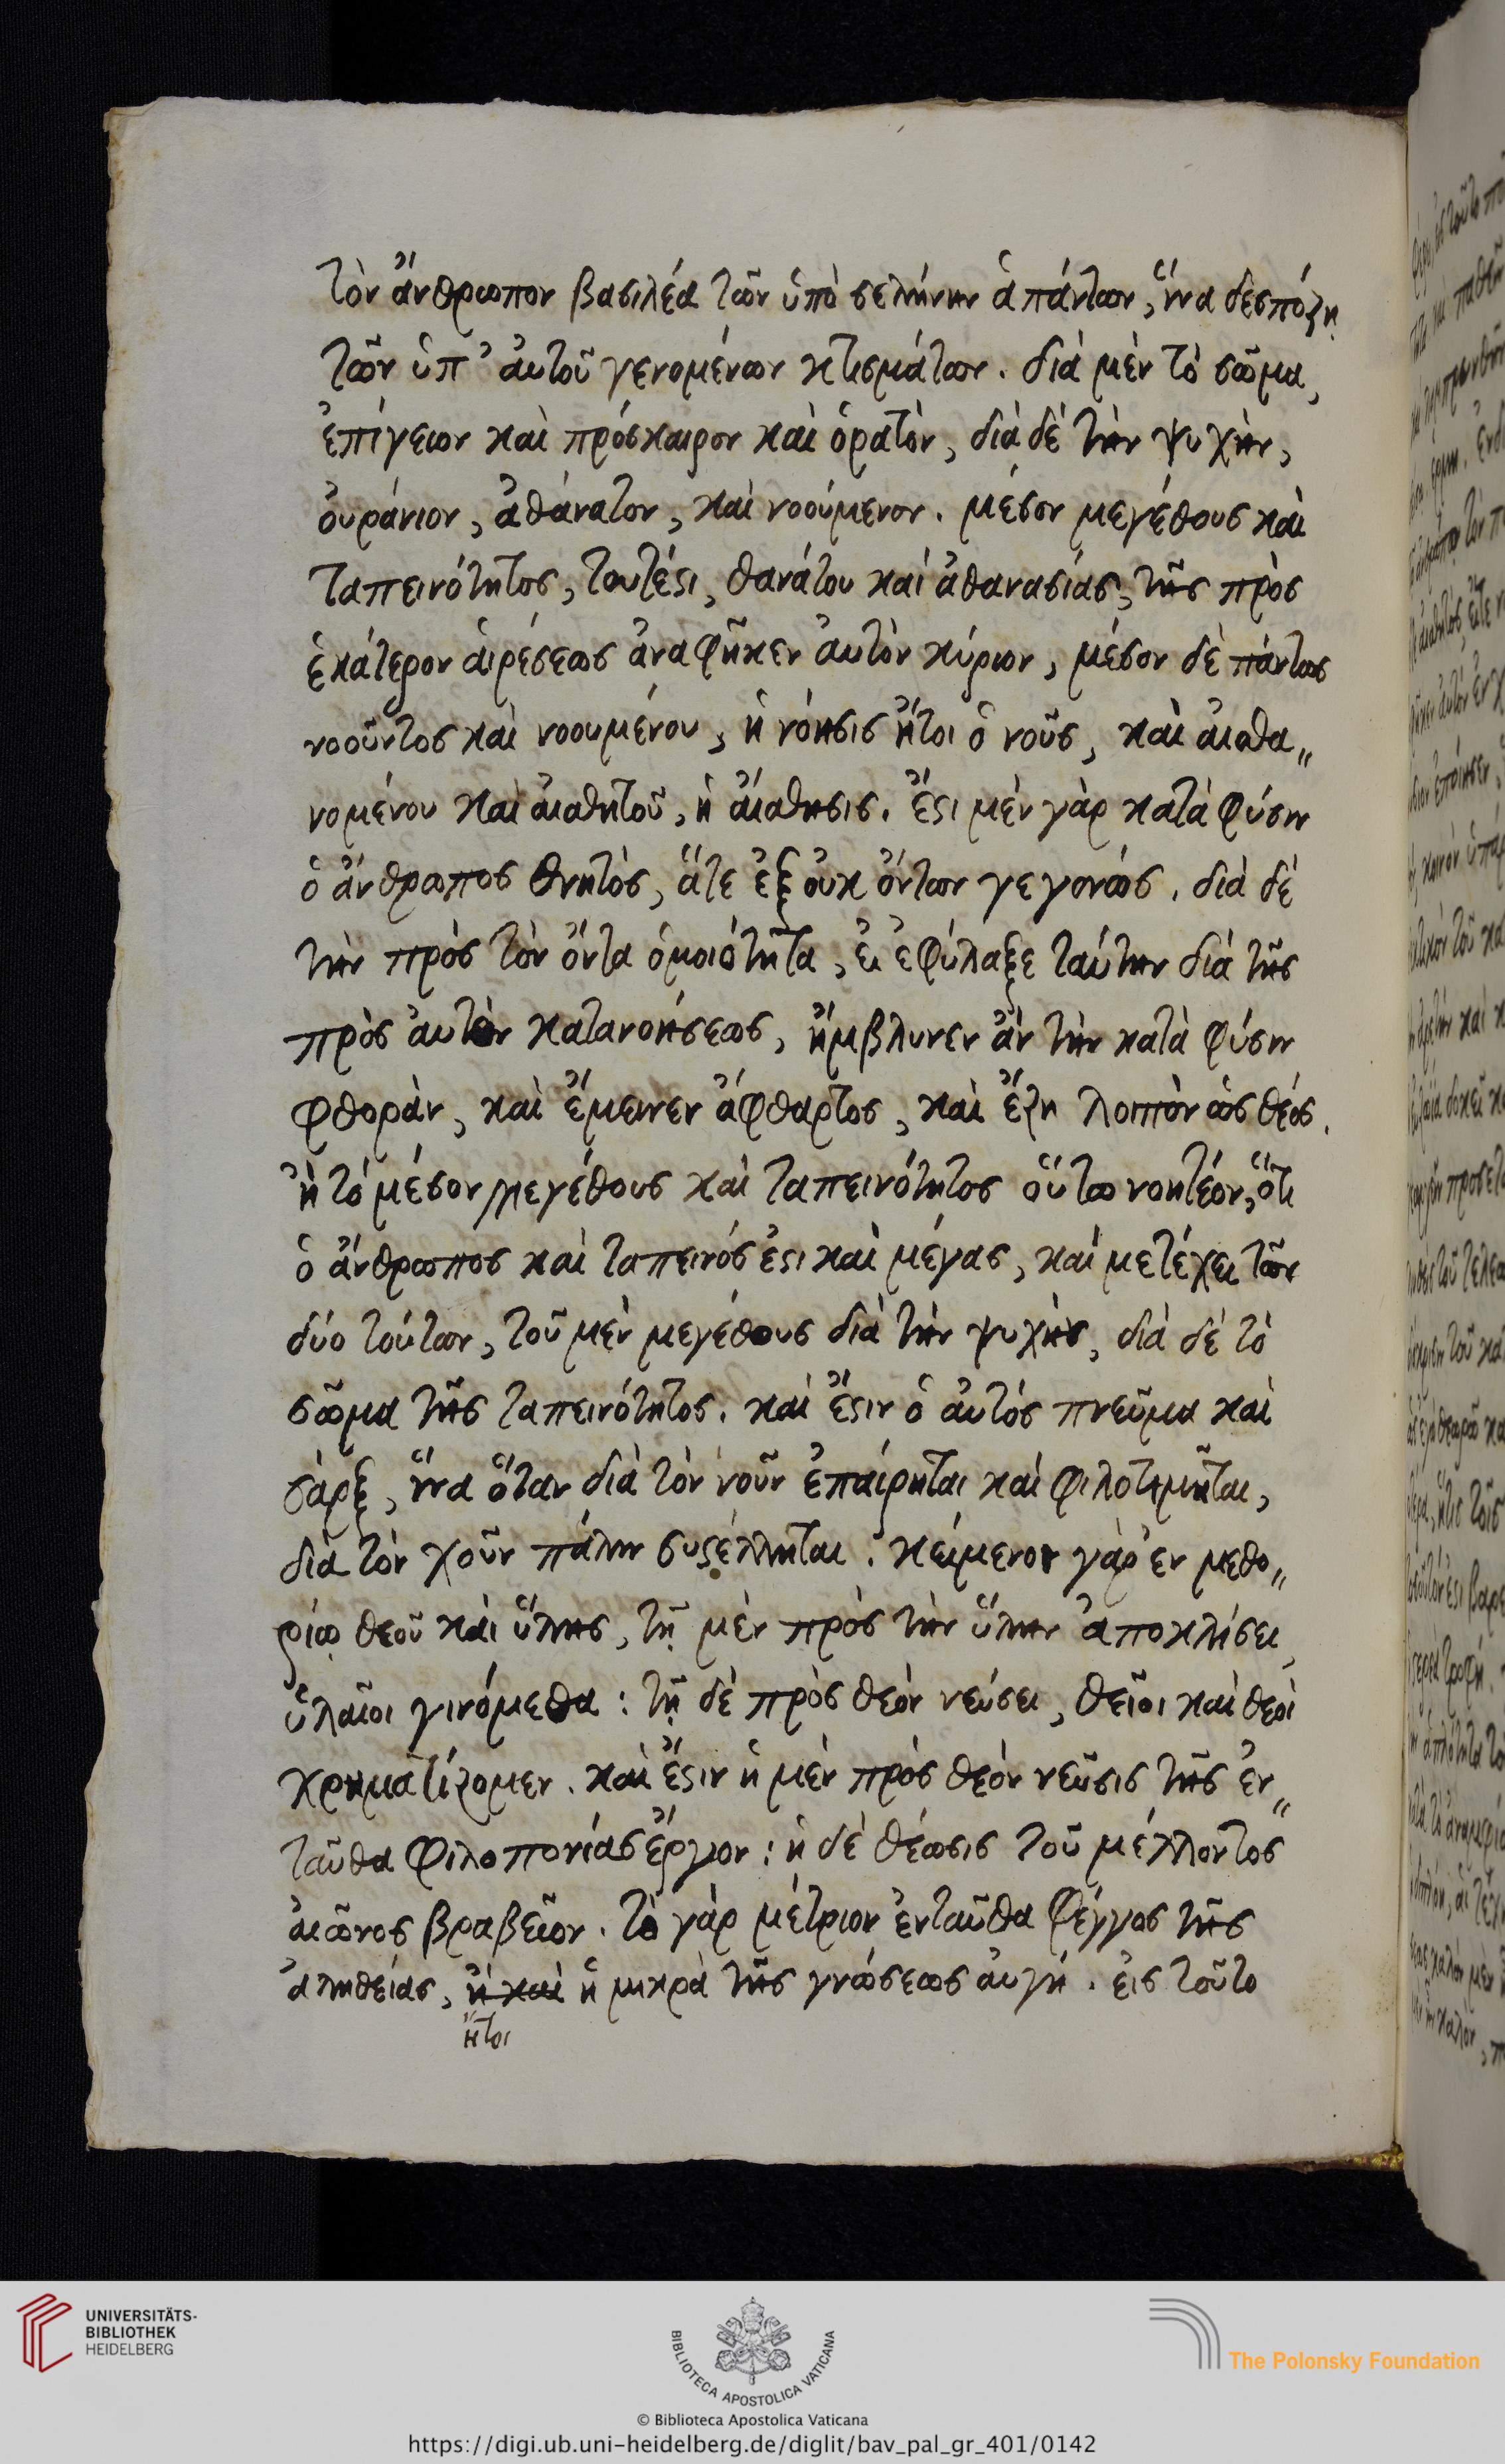 τὸν ἄνθρωπον βασιλέα τῶν ὑπὸ σελήνην ἁπάντων, ἵνα δεσπόζῃ
τῶν ὑπ' ἀυτοῦ γενομένων κτισμάτων. διὰ μὲν τὸ σῶμα,
ἐπίγειον καὶ πρόσκαιρον καὶ ὁρατὸν, διὰ δὲ τὴν ψυχὴν,
ὀυράνιον, ἀθάνατον, καὶ νοούμενον. μέσον μεγέθους καὶ
ταπεινότητος, τουτέστι, θανάτου καὶ ἀθανασίας, τῆς πρὸς
ἑκάτερον ἁιρέσεως ἀναφῆκεν ἀυτὸν κύριον, μέσον δὲ πάντως
νοοῦντος καὶ νοουμένου, ἡ νόησις ἤτοι ὁ νοῦς, καὶ ἀισθα„
νομένου καὶ ἀισθητοῦ, ἡ ἄισθησις. ἔστι μὲν γὰρ κατὰ φύσιν
ὁ ἄνθρωπος θνητὸς, ἅτε ἐξ ὀυκ ὄντων γεγονὼς. διὰ δὲ
τὴν πρὸς τὸν ὄντα ὁμοιότητα, ἐι ἐφύλαξε ταύτην διὰ τῆς
πρὸς ἀυτὸν κατανοήσεως, ἤμβλυνεν ἂν τὴν κατὰ φύσιν
φθορὰν, καὶ ἔμεινεν ἄφθαρτος, καὶ ἔζη λοιπὸν ὡς θεὸς.
ἢ τὸ μέσον μεγέθους καὶ ταπεινότητος ὅυτω νοητέον, ὅτι
ὁ ἄνθρωπος καὶ ταπεινός ἐστι καὶ μέγας, καὶ μετέχει τῶν
δύο τούτων, τοῦ μὲν μεγέθους διὰ τὴν ψυχὴν, διὰ δὲ τὸ
σῶμα τῆς ταπεινότητος. καὶ ἔστιν ὁ ἀυτὸς πνεῦμα καὶ
σὰρξ, ἵνα ὅταν διὰ τὸν νοῦν ἐπαίρηται καὶ φιλοτιμῆται,
διὰ τὸν χοῦν πάλιν συστέλληται. κείμενοι γὰρ ἐν μεθο„
ρίῳ θεοῦ καὶ ὕλης, τῇ μὲν πρὸς τὴν ὕλην ἀποκλίσει,
ὑλαῖοι γινόμεθα: τῇ δὲ πρὸς θεὸν νεύσει, θεῖοι καὶ θεοὶ
χρηματίζομεν. καὶ ἔστιν ἡ μὲν πρὸς θεὸν νεῦσις τῆς ἐν„
ταῦθα φιλοπονίας ἔργον: ἡ δὲ θέωσις τοῦ μέλλοντος
ἀιῶνος βραβεῖον. τὸ γὰρ μέτριον ἐνταῦθα φέγγος τῆς
ἀληθείας, ἢ καὶ ἡ μικρὰ τῆς γνώσεως ἀυγή. ἐις τοῦτο
ἤτοι
UNIVERSITÄTS-
BIBLIOTHEK
HEIDELBERG
BIBLIOTECA APOSTOLICA VATICANA
The Polonsky Foundation
© Biblioteca Apostolica Vaticana
https://digi.ub.uni-heidelberg.de/diglit/bav_pal_gr_401/0142